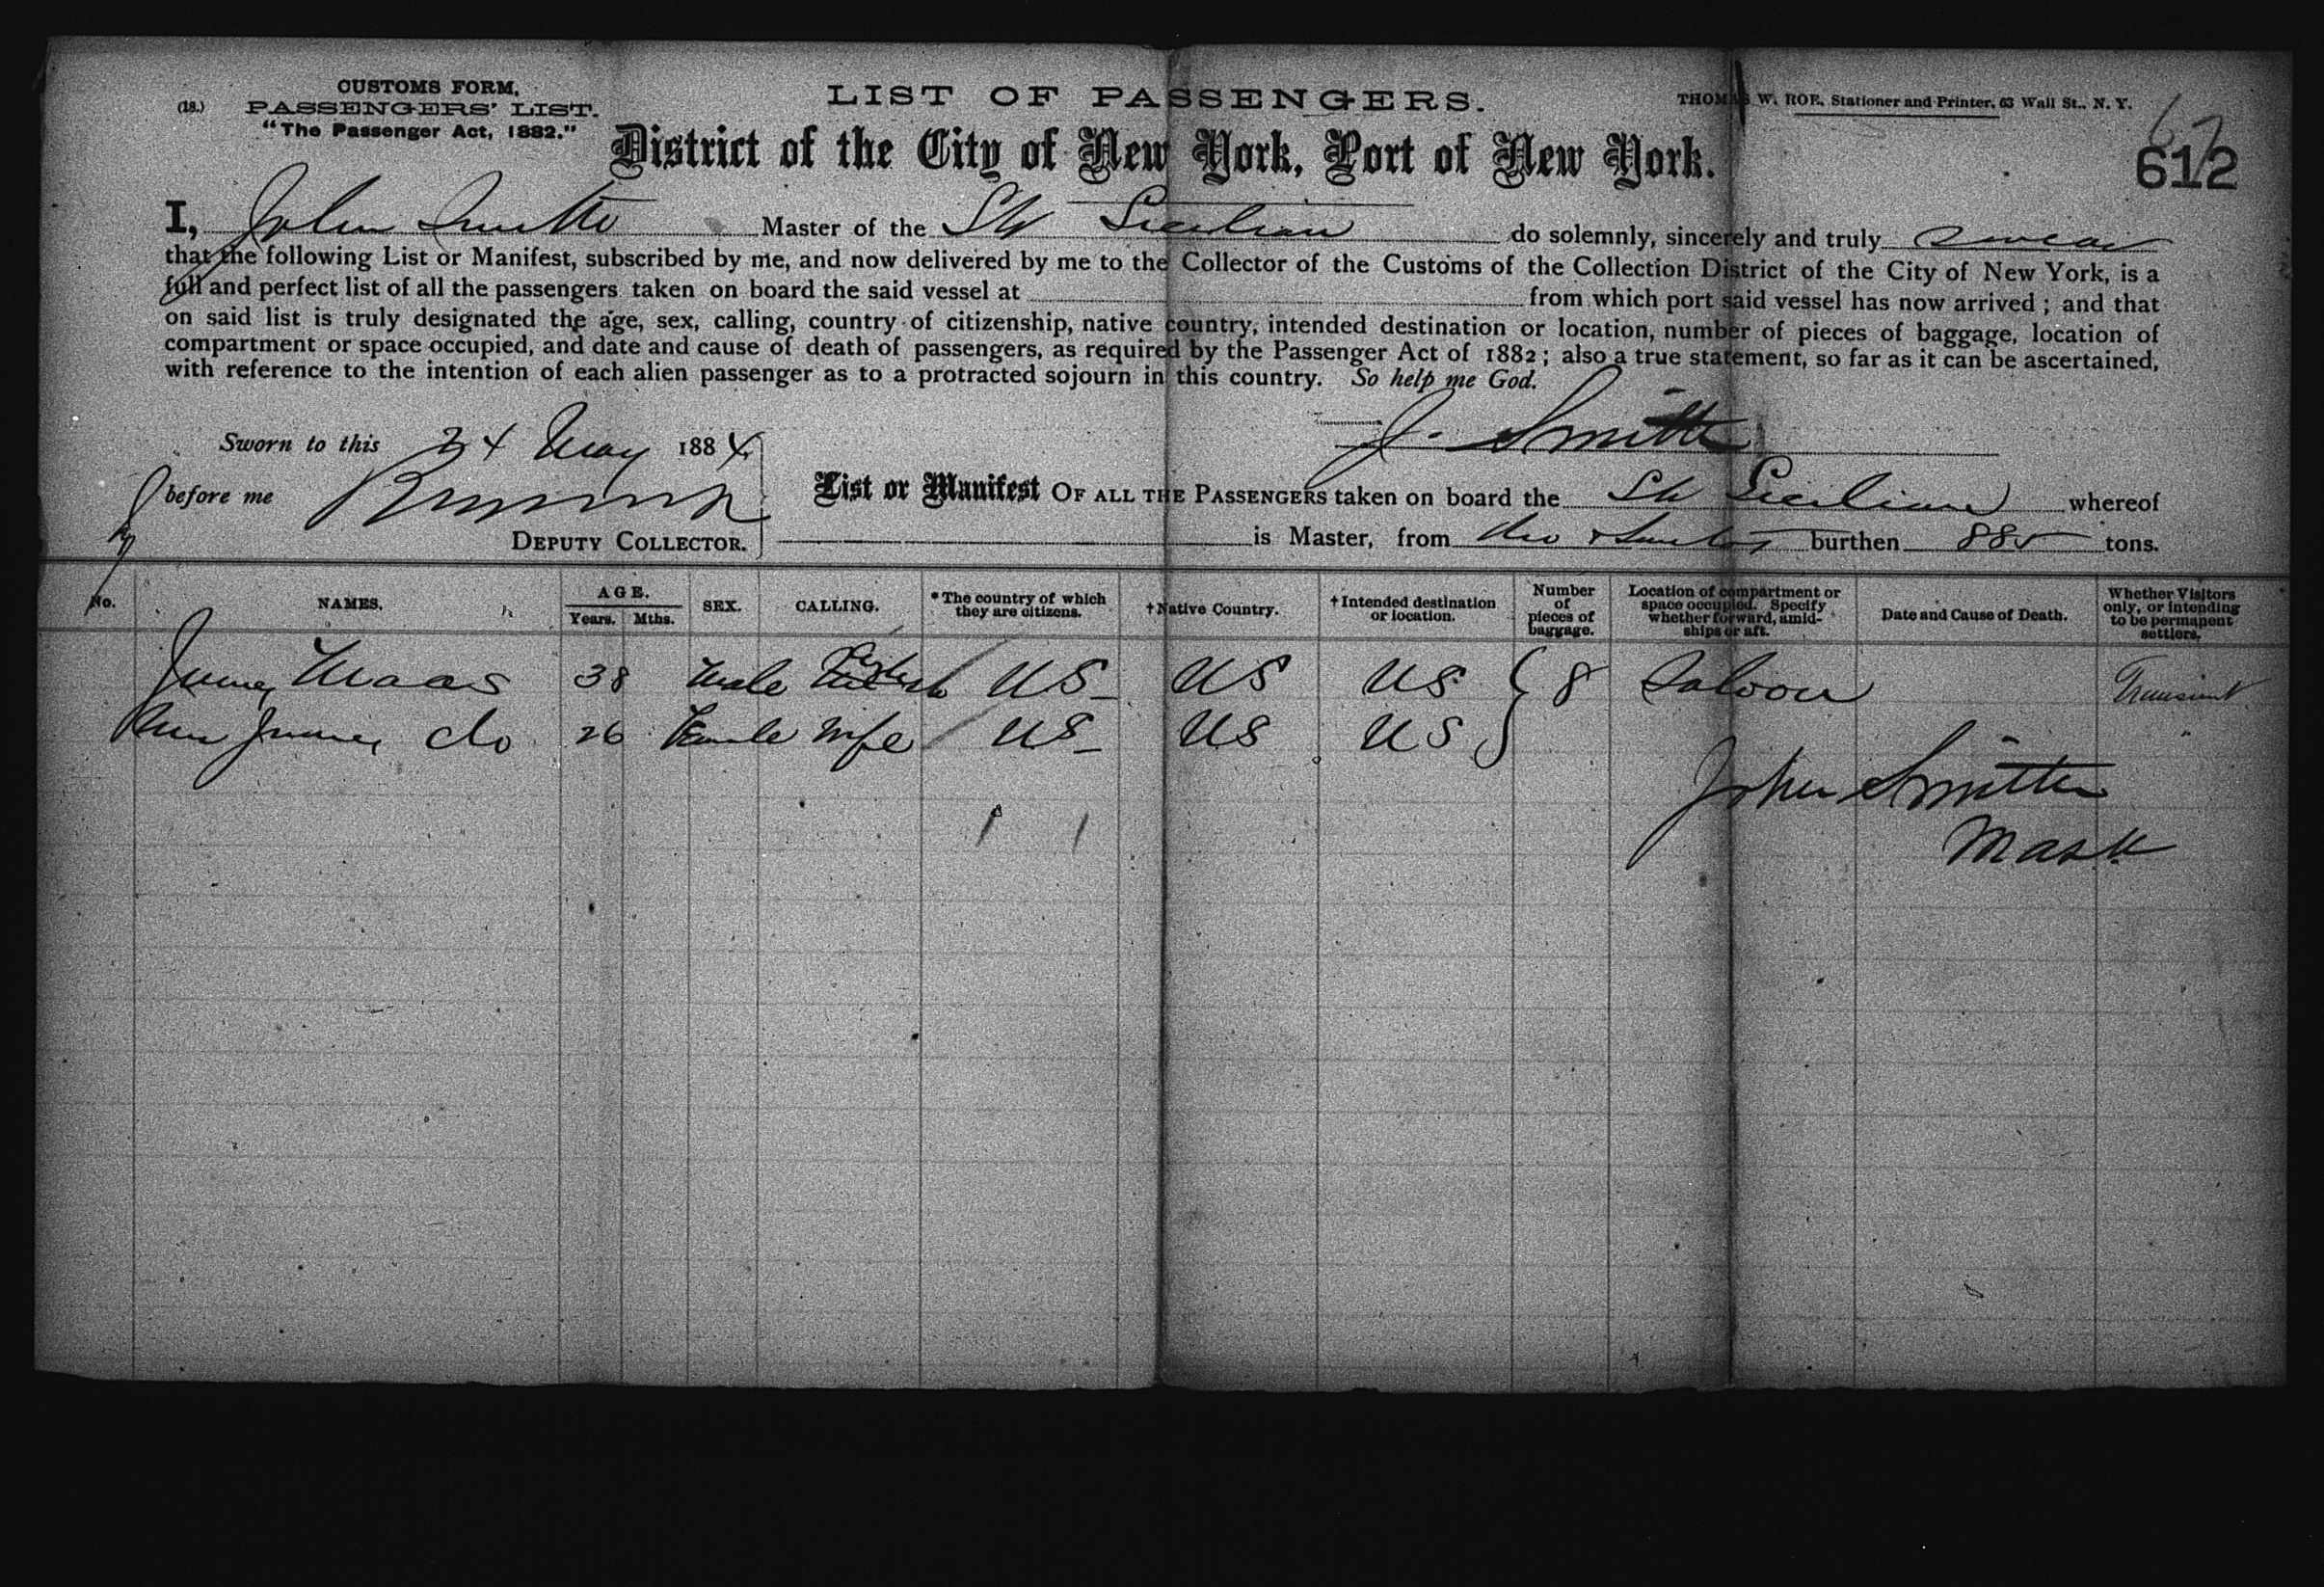 CUSTOMS FORM,
(18.) PASSENGERS' LIST.
"The Passenger Act, 1882."
LIST OF PASSENGERS.
THOMAS W. ROE, Stationer and Printer, 63 Wall St., N. Y.
67
612
District of the City of New York, Port of New York.
I, John Smith Master of the Str Sicilian do solemnly, sincerely and truly swear
that the following List or Manifest, subscribed by me, and now delivered by me to the Collector of the Customs of the Collection District of the City of New York, is a
full and perfect list of all the passengers taken on board the said vessel at from which port said vessel has now arrived ; and that
on said list is truly designated the age, sex, calling, country of citizenship, native country, intended destination or location, number of pieces of baggage, location of
compartment or space occupied, and date and cause of death of passengers, as required by the Passenger Act of 1882 ; also a true statement, so far as it can be ascertained,
with reference to the intention of each alien passenger as to a protracted sojourn in this country. So help me God.
J. Smith
Sworn to this 24 May 1884
before me
DEPUTY COLLECTOR.
List or Manifest OF ALL THE PASSENGERS taken on board the Str Sicilian whereof
is Master, from burthen 885 tons.
No. NAMES. AGE. Years. Mths. SEX. CALLING. *The country of which they are citizens. †Native Country. †Intended destination or location. Number of pieces of baggage. Location of compartment or space occupied. Specify whether forward, amidships or aft. Date and Cause of Death. Whether Visitors only, or intending to be permanent settlers.
Maas 38 Male US US US 8 Saloon Transient
do 26 Female Wife US US US "
John Smith
Mastr